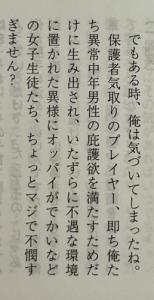 でもある時、俺は気づいてしまったね。
保護者気取りのプレイヤー、即ち俺た
ち異常中年男性の庇護欲を満たすためだ
けに生み出され、いたずらに不遇な環境
に置かれた異様にオッパイがでかいなど
の女子生徒たち、ちょっとマジで不憫す
ぎません？